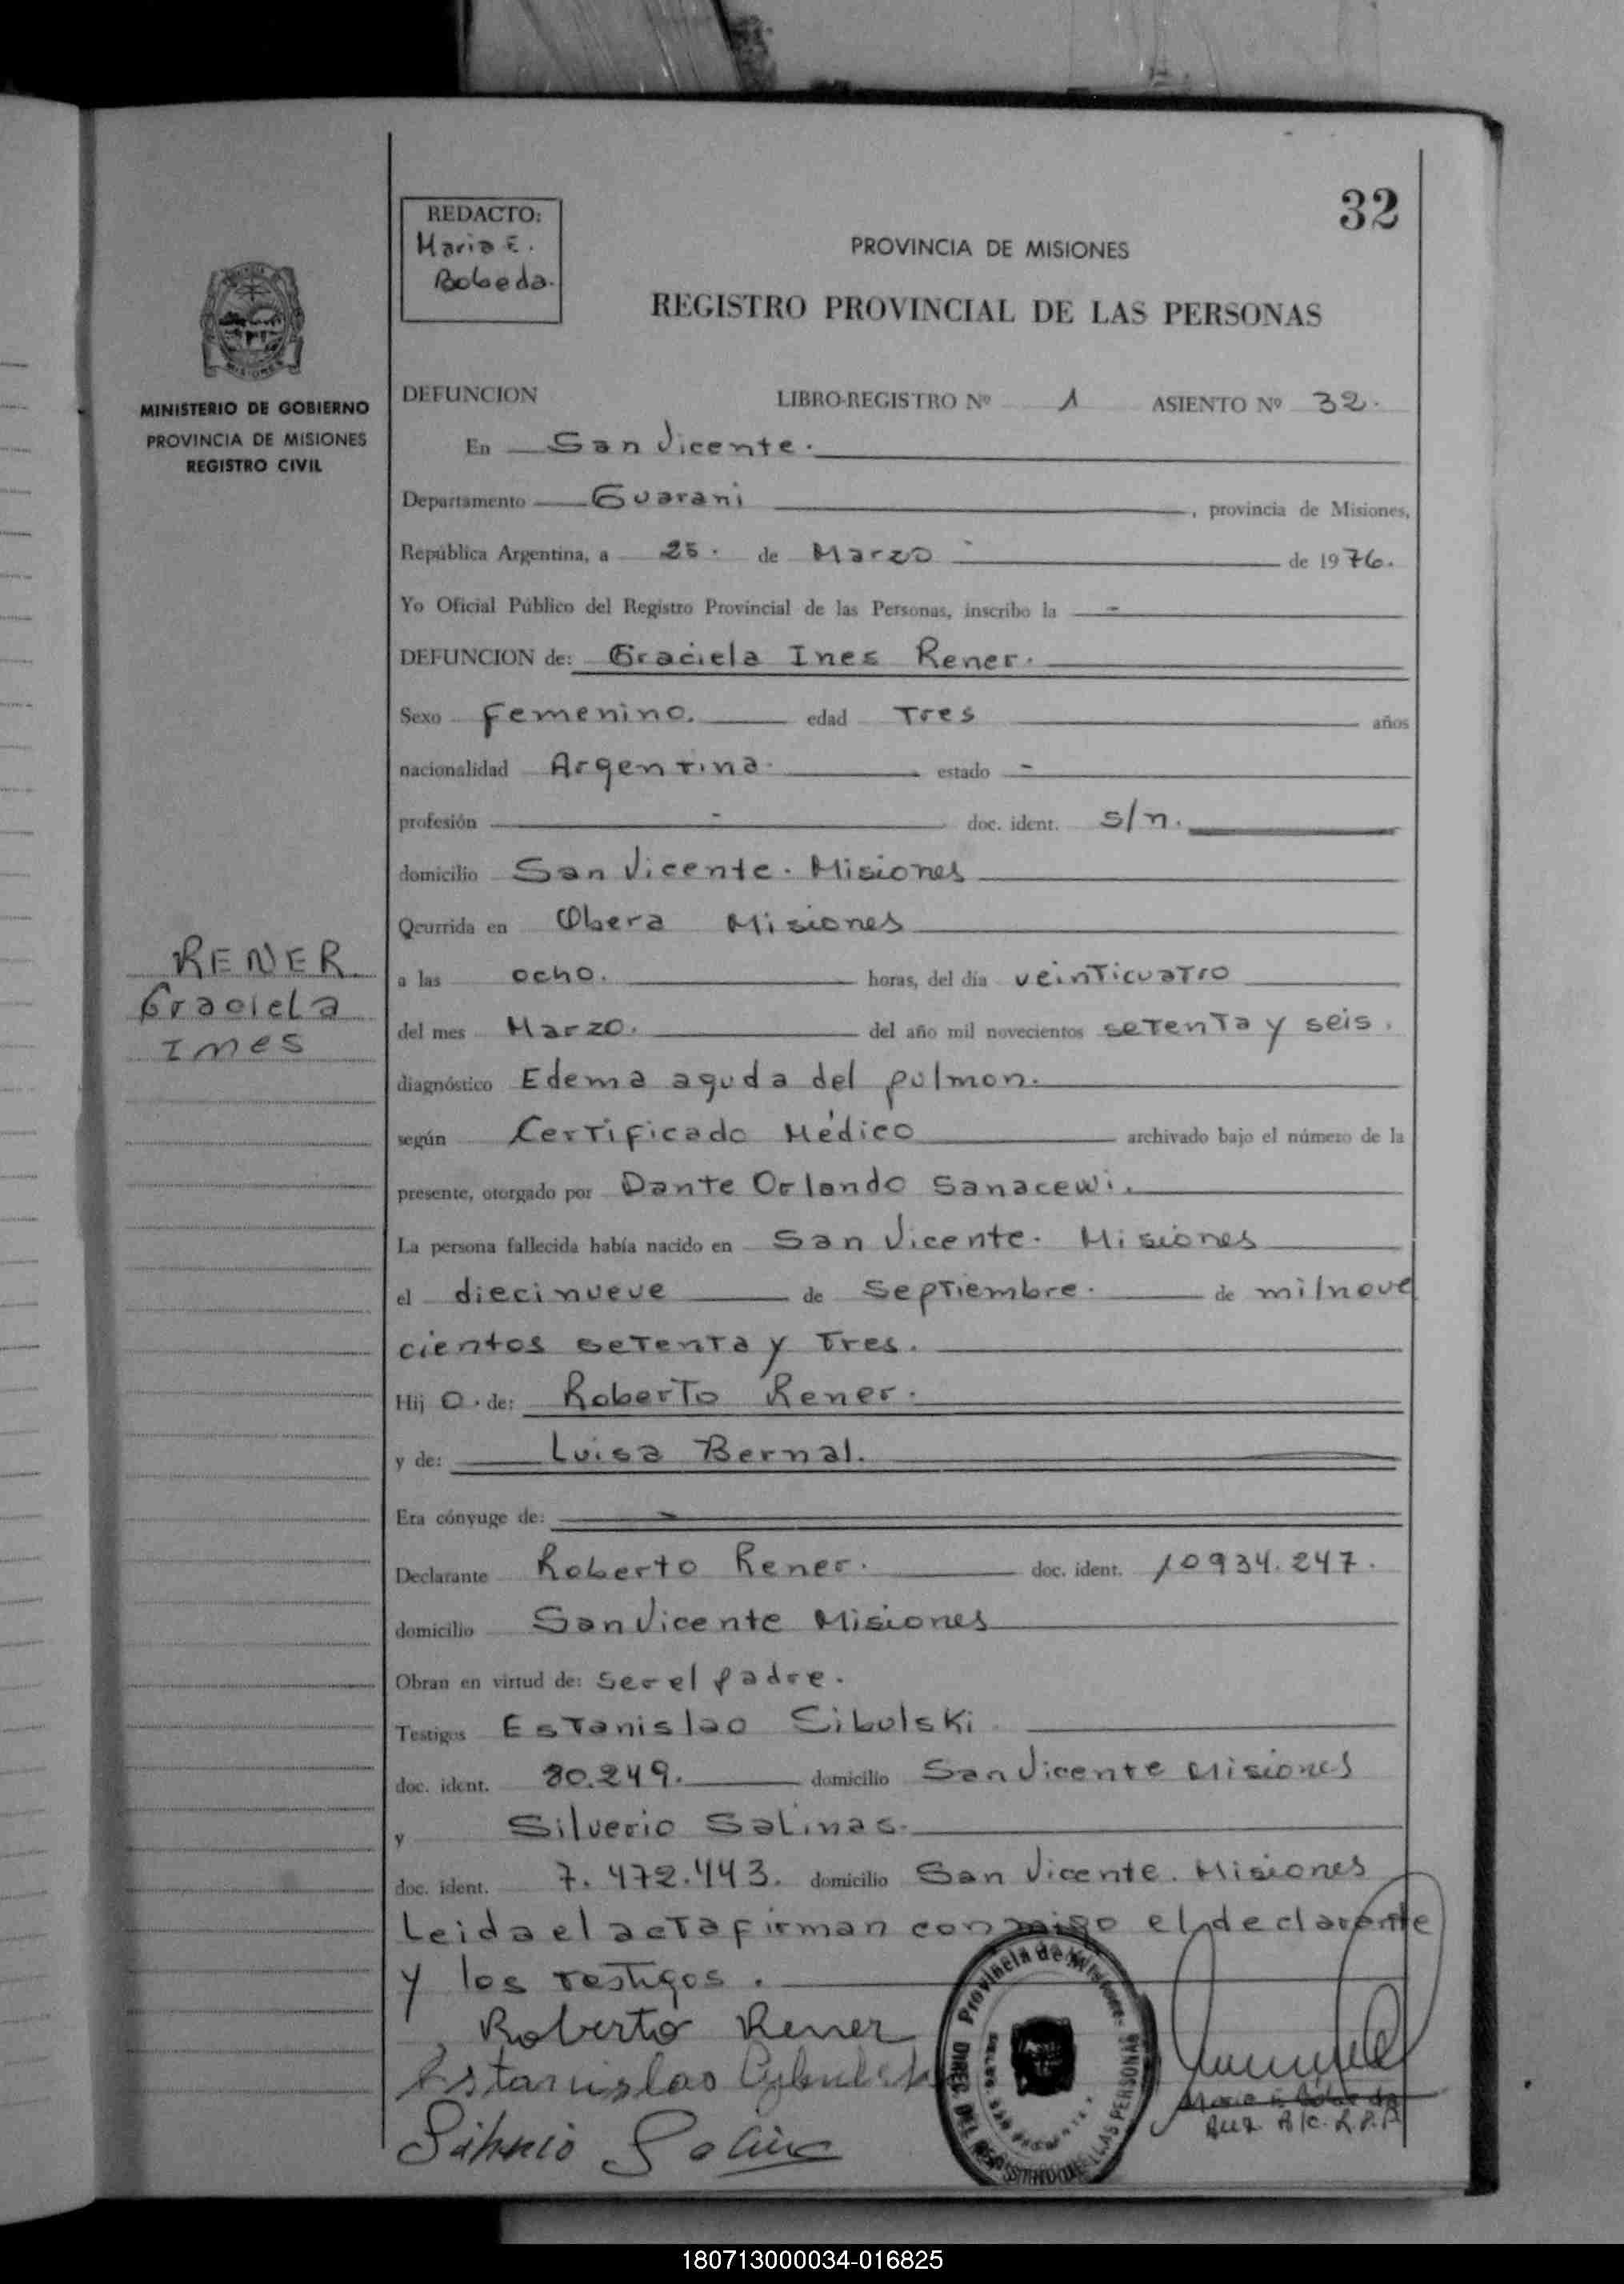 32
REDACTO:
Maria E.
Bobeda.
PROVINCIA DE MISIONES
REGISTRO PROVINCIAL DE LAS PERSONAS
MISIONES
MINISTERIO DE GOBIERNO
PROVINCIA DE MISIONES
REGISTRO CIVIL
DEFUNCION LIBRO-REGISTRO Nº 1 ASIENTO Nº 32.
En San Vicente.
Departamento Guarani , provincia de Misiones,
República Argentina, a 25. de Marzo de 1976.
Yo Oficial Público del Registro Provincial de las Personas, inscribo la -
DEFUNCION de: Graciela Ines Rener.
Sexo Femenino. edad Tres años
nacionalidad Argentina. estado -
profesión - doc. ident. s/n.
domicilio San Vicente. Misiones
Ocurrida en Obera Misiones
a las ocho. horas, del día veinticuatro
del mes Marzo. del año mil novecientos setenta y seis.
diagnóstico Edema aguda del pulmon.
según Certificado Médico archivado bajo el número de la
presente, otorgado por Dante Orlando Sanacewi.
La persona fallecida había nacido en San Vicente. Misiones
el diecinueve de Septiembre. de milnove
cientos setenta y Tres.
Hij o. de: Roberto Rener.
y de: Luisa Bernal.
Era cónyuge de: -
Declarante Roberto Rener. doc. ident. 10934.247.
domicilio San Vicente Misiones
Obran en virtud de: ser el padre.
Testigos Estanislao Cibulski
doc. ident. 80.249. domicilio San Vicente Misiones
y Silverio Salinas.
doc. ident. 7.472.443. domicilio San Vicente. Misiones
Leida el acta firman conmigo el declarante
y los testigos.
RENER
Graciela
Ines
Roberto Rener
Estanislao
Provincia de Misiones
DIREC. DEL REGISTRO DE LAS PERSONAS
180713000034-016825